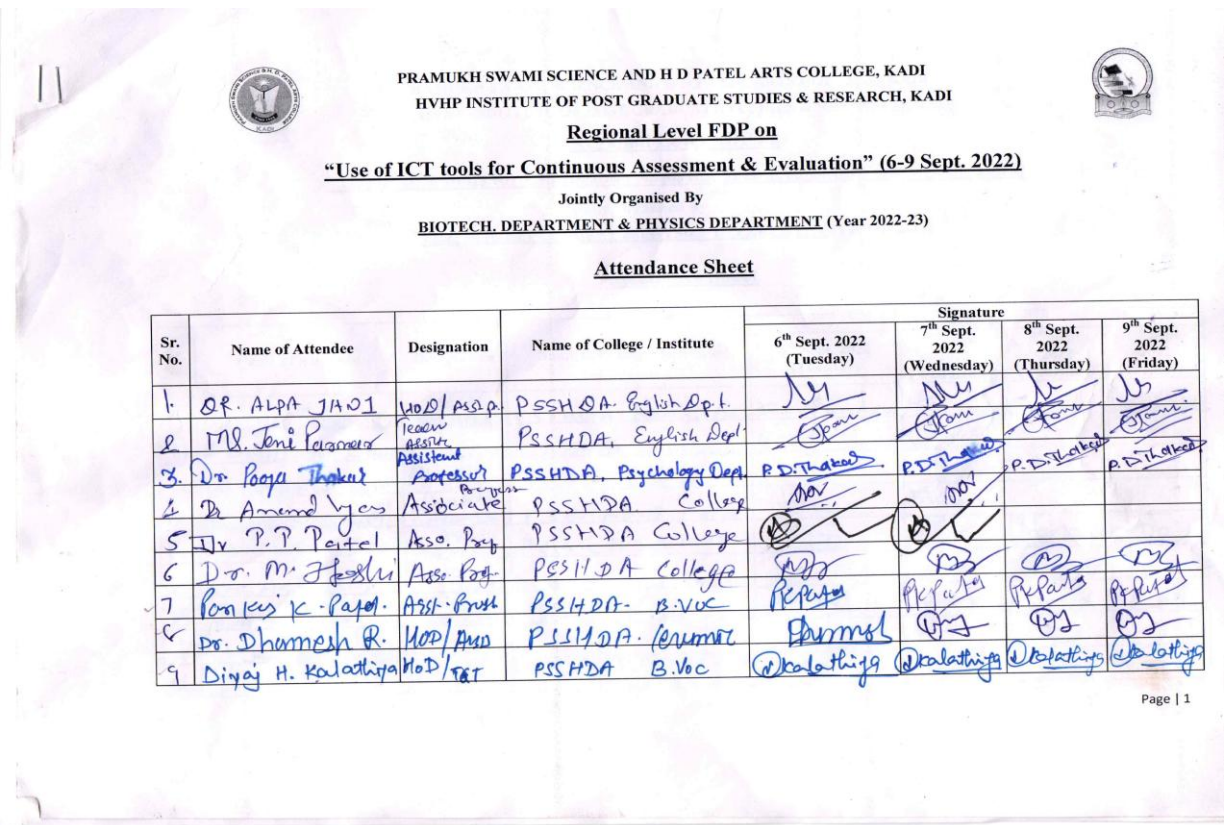 PRAMUKH SWAMI SCIENCE AND H D PATEL ARTS COLLEGE, KADI
HVHP INSTITUTE OF POST GRADUATE STUDIES & RESEARCH, KADI
Regional Level FDP on
“Use of ICT tools for Continuous Assessment & Evaluation” (6-9 Sept. 2022)
Jointly Organised By
BIOTECH. DEPARTMENT & PHYSICS DEPARTMENT (Year 2022-23)
Attendance Sheet
Sr. No. Name of Attendee Designation Name of College / Institute Signature
6th Sept. 2022 (Tuesday) 7th Sept. 2022 (Wednesday) 8th Sept. 2022 (Thursday) 9th Sept. 2022 (Friday)
1. DR. ALPA JANI HOD/ PSSHDA. English Dpt.
2 Ms. Jeni Parmar PSSHDA, English Dept.
3. Dr. Pooja Thakur Assistant Professor PSSHDA, Psychology Dep. P.D.Thakur P.D.Thakur P.D.Thakur P.D.Thakur
4 Dr Anand Vyas Associate PSSHDA College
5 Dr P.P. Patel Asso. Prof PSSHDA College
6 Dr. M. Asso. Prof. PSSHDA College
7 Pankaj K. Patel. PSSHDA- B.VOC PKPatel PKPatel PKPatel PKPatel
8 Dr. Dharmesh R. HOD/ PSSHDA.
9 H. Kalathiya HoD/ PSSHDA B.Voc Dkalathiya Dkalathiya Dkalathiya Dkalathiya
Page | 1